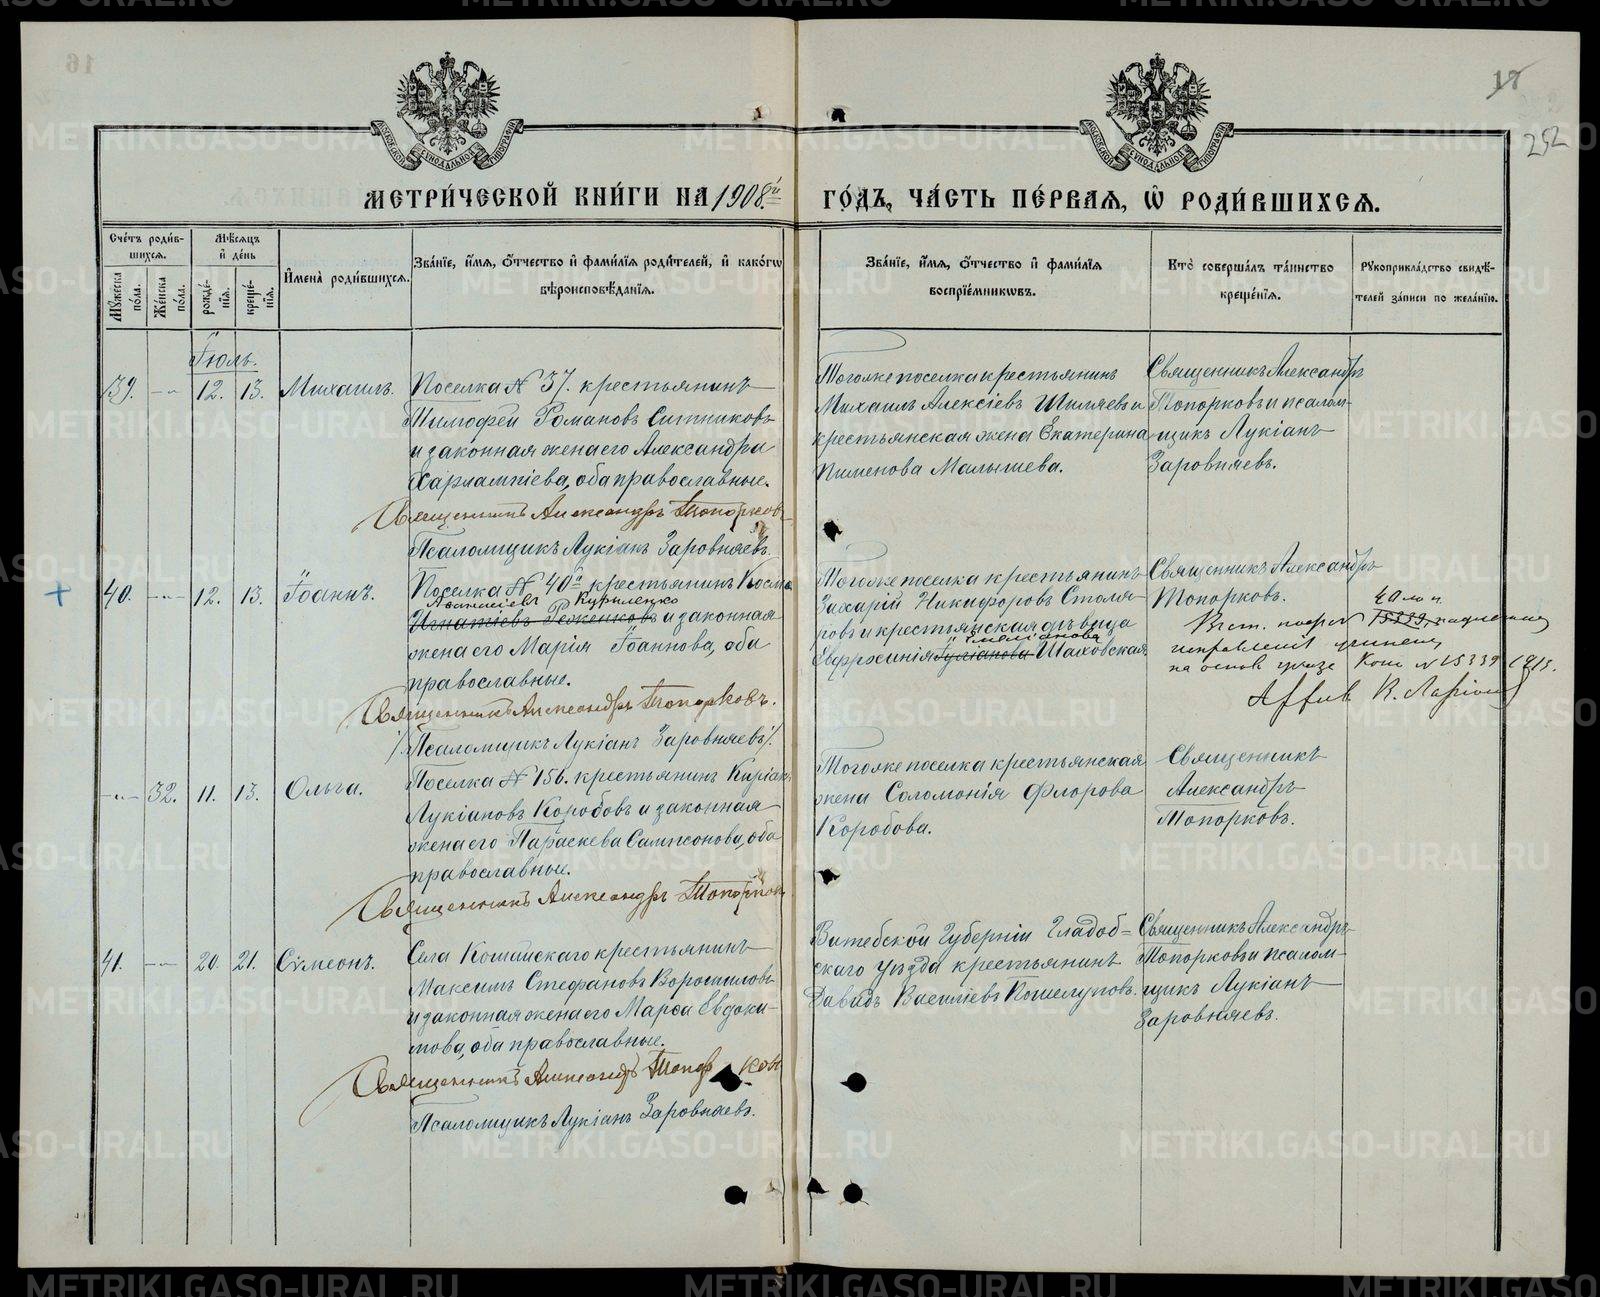 17
252
МЕТРИ́ЧЕСКОЙ КНИ́ГИ НА 1908й ГО́ДЪ, ЧА́СТЬ ПЕ́РВАЯ, Ѡ҆ РОДИ́ВШИХСЯ.
Сче́тъ роди́в-
шихся.
Мꙋ́жеска
по́ла.
Же́нска
по́ла.
Мѣ́сяцъ
и҆ де́нь
рожде́-
нїя.
креще́-
нїя.
И҆мена̀ роди́вшихся.
Зва́нїе, и҆́мя, ѻ҆́тчество и҆ фами́лїя роди́телей, и҆ како́гѡ
вѣроисповѣ́данїя.
Зва́нїе, и҆́мя, ѻ҆́тчество и҆ фами́лїя
воспрїе́мникѡвъ.
Кто̀ соверша́лъ та́инство
креще́нїя.
Рꙋкоприкла́дство свидѣ́-
телей за́писи по жела́нїю.
Іюль.
39. -"- 12. 13. Михаилъ.
Поселка № 37. крестьянинъ
Тимофей Романовъ Ситниковъ
и законная жена его Александра
Харлампіева, оба православные.
Священникъ Александръ Топорковъ
Псаломщикъ Лукіанъ Заровняевъ.
Тогоже поселка крестьянинъ
Михаилъ Алексіевъ Шиляевъ и
крестьянская жена Екатерина
Пименова Малышева.
Священникъ Александръ
Топорковъ и псалом-
щикъ Лукіанъ
Заровняевъ.
40. -"- 12. 13. Іоаннъ.
Поселка № 40й крестьянинъ Косма
Куриленко
Игнатіевъ и законная
жена его Марія Іоаннова, оба
православные.
Священникъ Александръ Топорковъ.
Псаломщикъ Лукіанъ Заровняевъ
Тогоже поселка крестьянинъ
Захарій Никифоровъ Столя-
ровъ и крестьянская дѣвица
Евфросинія Шаховская.
Священникъ Александръ
Топорковъ.
№ 15339 1913.
-"- 32. 11. 13. Ольга.
Поселка № 156. крестьянинъ Киріакъ
Лукіановъ Коробовъ и законная
жена его Параскева Сампсонова, оба
православные.
Священникъ Александръ Топорковъ
Тогоже поселка крестьянская
жена Соломонія Флорова
Коробова.
Священникъ
Александръ
Топорковъ.
41. -"- 20. 21. Сѵмеонъ.
Села Кошайскаго крестьянинъ
Максимъ Стефановъ Ворошиловъ
и законная жена его Марѳа Евдоки-
мова, оба православные.
Священникъ Александръ Топорковъ
Псаломщикъ Лукіанъ Заровняевъ.
Витебской Губерніи
скаго уѣзда крестьянинъ
Давидъ Василіевъ Кошелуповъ.
Священникъ Александръ
Топорковъ и псалом-
щикъ Лукіанъ
Заровняевъ.
METRIKI.GASO-URAL.RU